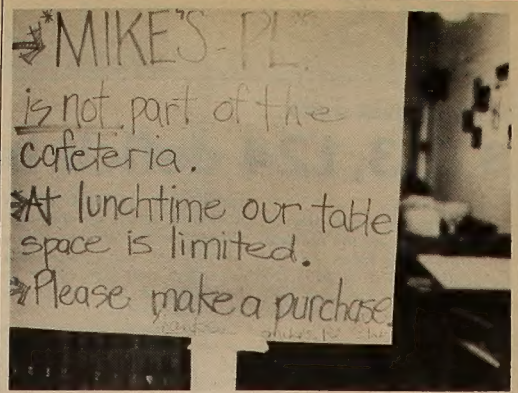 *MIKE'S-PL.
is not part of the
cafeteria.
*At lunchtime our table
space is limited.
*Please make a purchase.